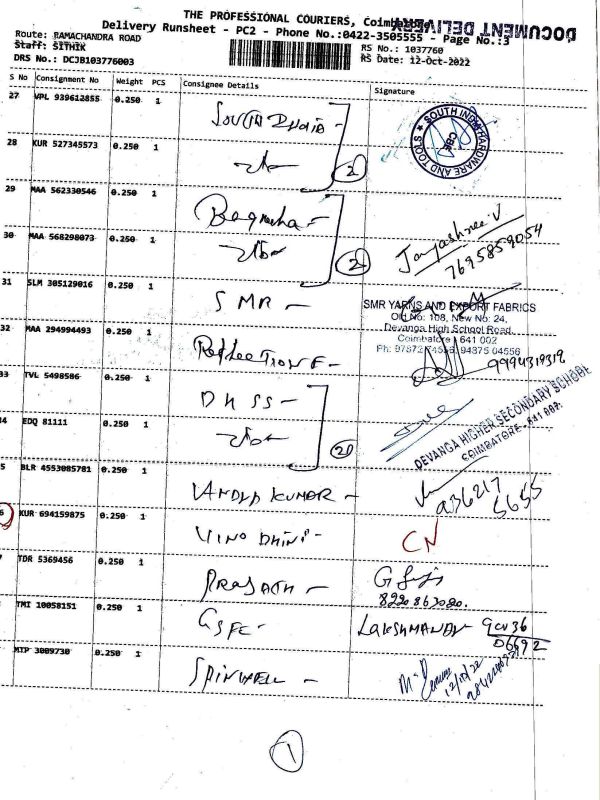 THE PROFESSIONAL COURIERS, Coimbatore
DOCUMENT DELIVERY
Delivery Runsheet - PC2 - Phone No.:0422-3505555 - Page No.:3
Route: RAMACHANDRA ROAD
Staff: SITHIK
DRS No.: DCJB103776003
RS No.: 1037760
RS Date: 12-Oct-2022
S No Consignment No Weight PCS Consignee Details Signature
27 VPL 939612855 0.250 1 South India
SOUTH INDIA HARDWARE AND TOOLS
CBE
28 KUR 527345573 0.250 1
2
29 MAA 562330546 0.250 1
Jayashree.V
7695859054
30 MAA 568298073 0.250 1
2
31 SLM 305129016 0.250 1 SMR
SMR YARNS AND EXPORT FABRICS
Old No: 108, New No: 24,
Devanga High School Road,
Coimbatore - 641 002
Ph: 97872 74556, 94875 04556
32 MAA 294994493 0.250 1 Reflections
9994319319
33 TVL 5498586 0.250 1 DHSS
DEVANGA HIGHER SECONDARY SCHOOL
COIMBATORE - 641 002.
34 EDQ 81111 0.250 1
2
35 BLR 4553085781 0.250 1 KUMAR
936217
5655
36 KUR 694159875 0.250 1 VINODHINI
CN
TDR 5369456 0.250 1 PRASATH
8220863080.
TMI 10058151 0.250 1 GSFC
LAKSHMANAN 90036
06692
MTP 3009730 0.250 1 SPINWELL
12/10/22
1